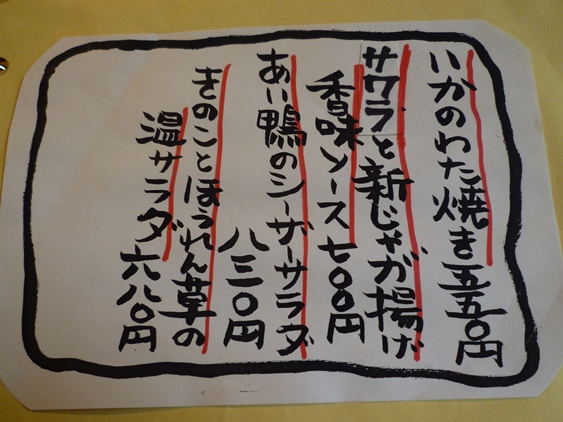 いかのわた焼き五五〇円
サワラと新じゃが揚げ
香味ソース七〇〇円
あい鴨のシーザーサラダ
八三〇円
きのことほうれん草の
温サラダ六八〇円